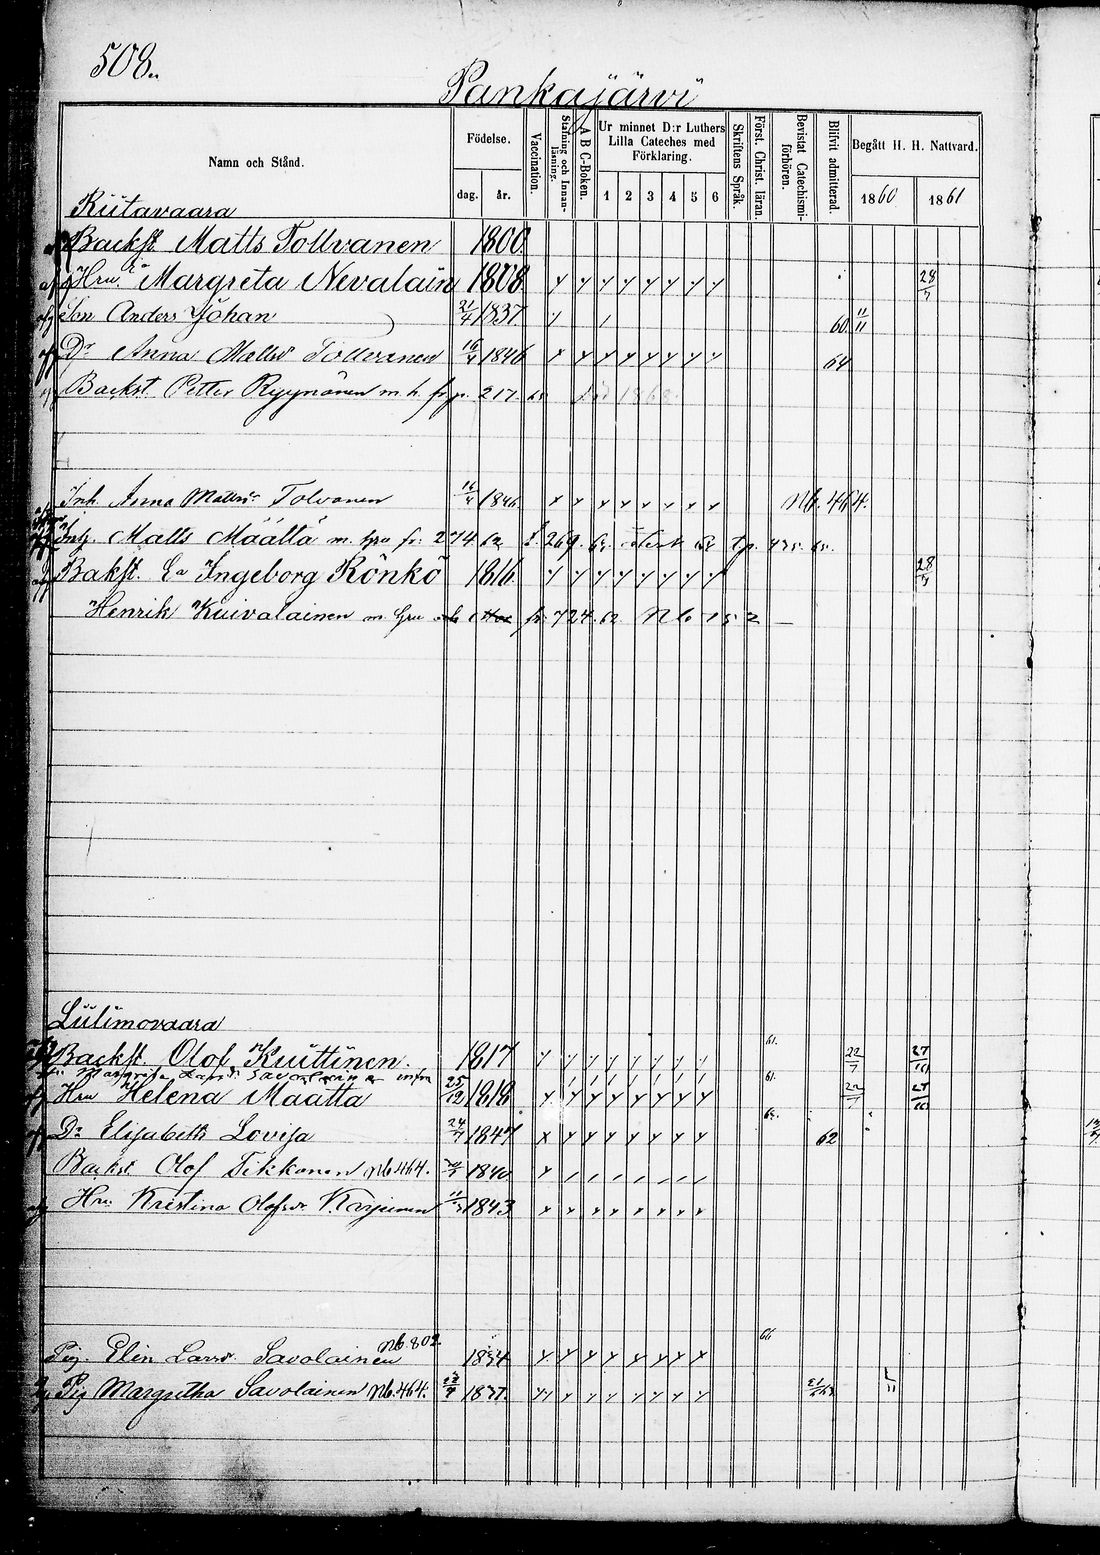 508.
Pankajärvi
Namn och Stånd.
Födelse.
dag. år.
Vaccination.
Stafning och Innanläsning.
A B C-Boken.
Ur minnet D:r Luthers Lilla Cateches med Förklaring.
1 2 3 4 5 6
Skriftens Språk.
Först. Christ. läran.
Bevistat Catechismiförhören.
Blifvit admitterad.
Begått H. H. Nattvard.
1860 1861
Riitavaara
Backst. Matts Tollvanen 1800.
Hru. Margreta Nevalain 1808 28/7
Son Anders Johan 21/4 1837 60. 11/11
Dr Anna Mattsdr Tollvanen 16/4 1846 64
Backst. Petter Ryynänen m. h. fr. p. 217. 65
Inh. Anna Mattsdr Tolvanen 16/4 1846. Nb. 464.
Inh. Matts Määttä m. hru fr. 274. 62 f. 269. 435. 65.
Bakst. Ea Ingeborg Rönkö 1816 28/7
Henrik Kuivalainen m. hru fr. 724. 62 Nb 152
Liilimovaara
Backst. Olof Kuittinen. 1817 61. 22/7 27/10
Margreta Larsdr Savolainen
Hru Helena Määttä 25/12 1818 61. 22/7 27/10
Dr Elisabeth Lovisa 24/7 1847 62
Backst Olof Tikkanen Nb 464. 1840
Hru. Kristina Olofsdr 1843
Pig. Elin Larsdr. Savolainen Nb. 802 1834 66
Pig Margretha Savolainen Nb. 464. 1837.